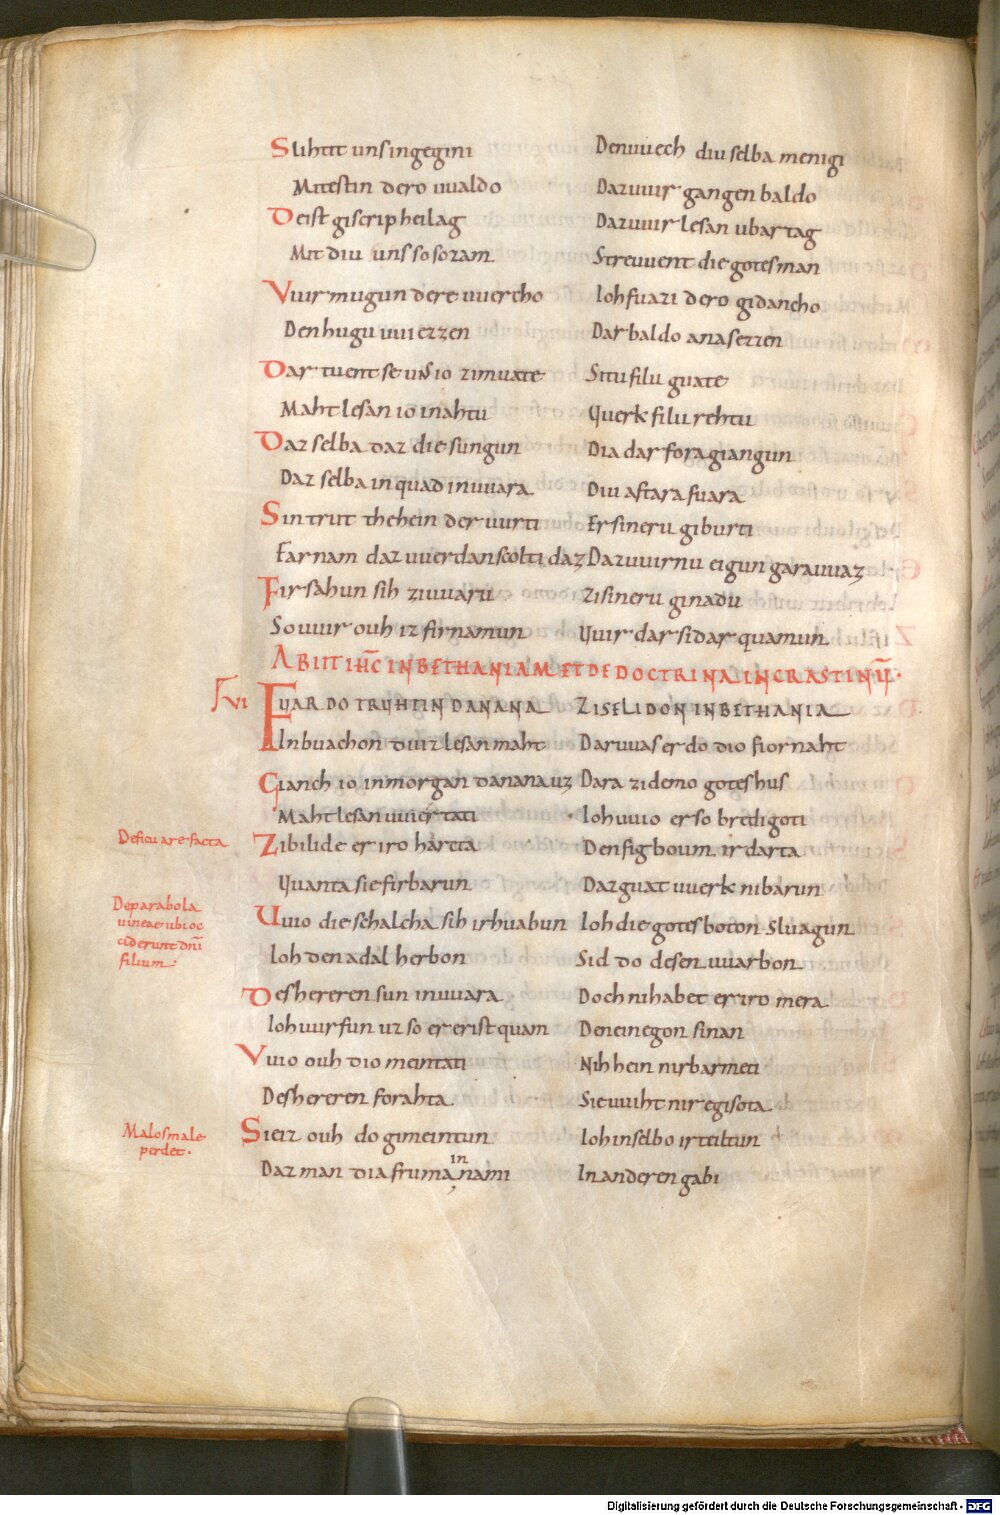 Slihtit unsingegini Denuuech diu selba menigi
Mitestin dero uualdo Dazuuir gangen baldo
Deist giscrip heilag Dazuuir lesan ubar tag
Mit diu uns so sozam Streuuent die gotes man
Vuir mugun dere uuercho Ioh fuazi dero gidancho
Den hugu uuiezzen Dar baldo anasezzen
Dar tuent se uns io zimuate Situ filu guate
Maht lesan io inahtu Uuerk filu rehtu
Daz selba daz die sungun Dia dar foragiangun
Daz selba inquad inuuara Diu aftara fuara
Sin trut thehein der uurti Er sineru giburti
Farnam daz uuerdan scolti daz Dazuuirnu eigun garauuaz
Firsahun sih ziuuaru Zisineru ginadu
So uuir ouh iz firnamun Uuir dar sidar quamun
ABIIT IHC IN BETHANIAM ET DE DOCTRINA IN CRASTINU.
VI FUAR DO TRUHTIN DANANA ZISELIDON IN BETHANIA
In buachon duiz lesan maht Dazuuas er do dio fiornaht
Gianch io inmorgan dananauz Dara zidemo gotes hus
Maht lesan uuier tati Ioh uuio er so bredigoti
Deficu arefacta Zibilide er iro harta Den figboum ir darta
Uuanta sie firbarun Daz guat uuerk nibarun
De parabola
uineae ubi oc
ciderunt dni
filium. Uuio die schalcha sih irhuabun Ioh die gotes boton sluagun
Ioh den adal herbon Sid do desen uuarbon
Des hereren sun inuuara Doch nihabet er iro mera
Ioh uurfun uz so er erist quam Den einegon sinan
Vuio ouh dio meintati Nih hein nirbarmeti
Des hereren forahta Sieuuiht niregisota
Malos male
perdet. Sie iz ouh do gimeintun Ioh inselbo irteiltun
Daz man dia fruma in nami In anderen gabi
Digitalisierung gefördert durch die Deutsche Forschungsgemeinschaft - DFG